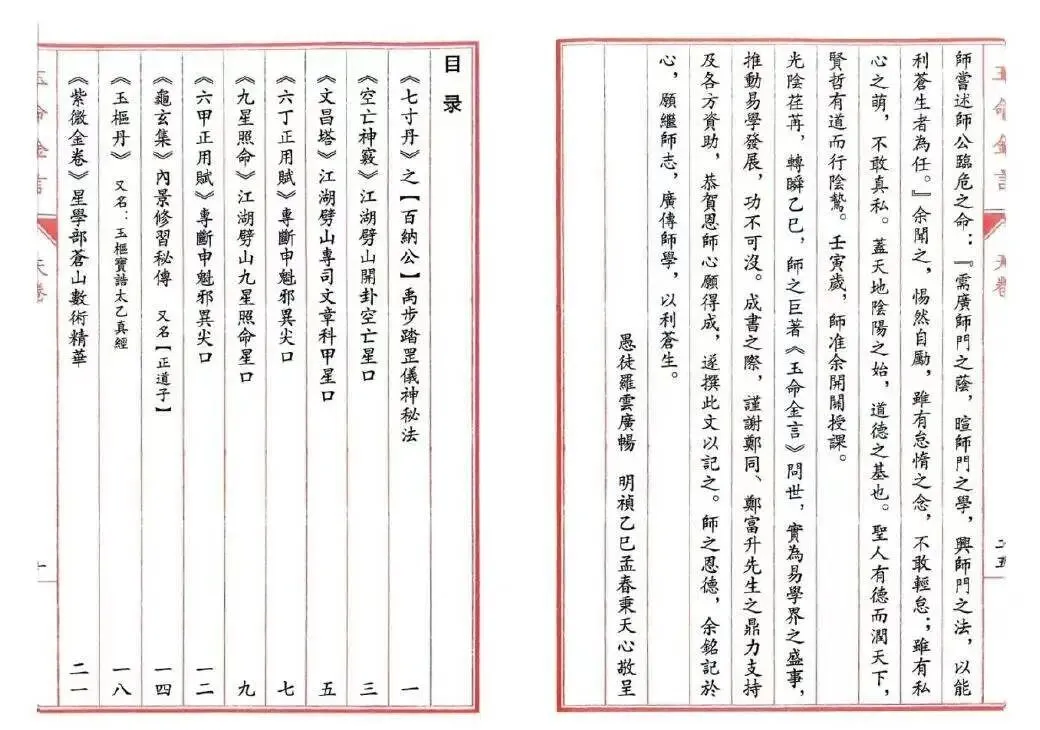 師嘗述師公臨危之命：『需廣師門之蔭，暄師門之學，興師門之法，以能
利蒼生者為任。』余聞之，惕然自勵，雖有怠惰之念，不敢輕怠；雖有私
心之萌，不敢真私。蓋天地陰陽之始，道德之基也。聖人有德而潤天下，
賢哲有道而行陰騭。壬寅歲，師准余開閞授課。
光陰荏苒，轉瞬乙巳，師之巨著《玉命金言》問世，實為易學界之盛事，
推動易學發展，功不可沒。成書之際，謹謝鄭同、鄭富升先生之鼎力支持
及各方資助，恭賀恩師心願得成，遂撰此文以記之。師之恩德，余銘記於
心，願繼師志，廣傳師學，以利蒼生。
愚徒羅雲廣暢　明禎乙巳孟春秉天心敬呈
目录
《七寸丹》之【百納公】禹步踏罡儀神秘法 一
空亡神竅》江湖劈山開卦空亡星口 三
《文昌塔》江湖劈山專司文章科甲星口 五
《六丁正用賦》專斷申魁邪異尖口 七
九星照命》江湖劈山九星照命星口 九
《六甲正用賦》專斷申魁邪異尖口 一二
《龜玄集》內景修習秘傳　又名【正道子】 一四
《玉樞丹》又名：玉樞寶誥太乙真經 一八
《紫微金卷》星學部蒼山數術精華 二一
玉命金言
天卷
一